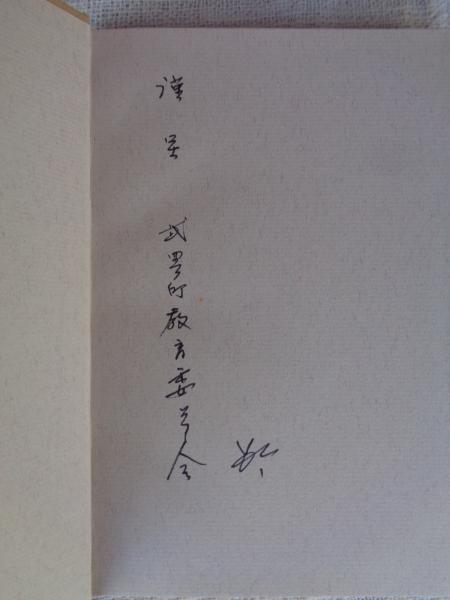 謹呈 武豊町教育委員会